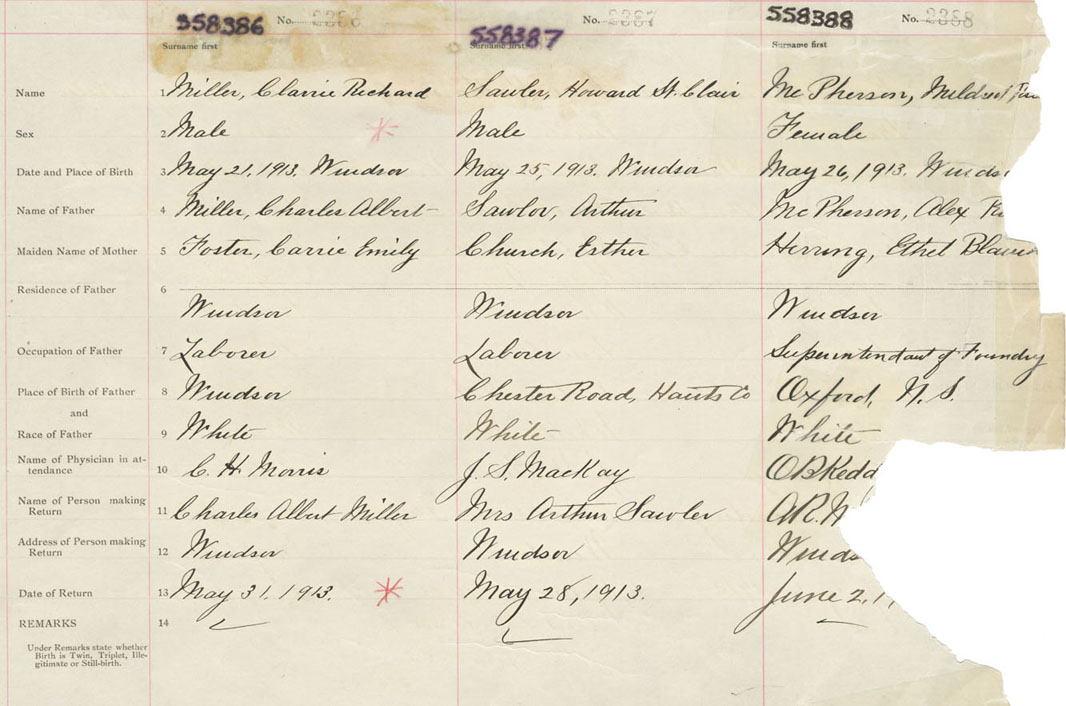 558386 No. 2266 558387 No. 2267 558388 No. 2268
Surname first Surname first Surname first
Name 1 Miller, Clarrie Richard Sawler, Howard St. Clair Mc Pherson, Mildred
Sex 2 Male Male Female
Date and Place of Birth 3 May 21, 1913. Windsor May 25, 1913. Windsor May 26, 1913. Winds
Name of Father 4 Miller, Charles Albert Sawlor, Arthur Mc Pherson, Alex
Maiden Name of Mother 5 Foster, Carrie Emily Church, Esther Herring, Ethel
Residence of Father 6
Windsor Windsor Windsor
Occupation of Father 7 Laborer Laborer Superintendant of Foundry
Place of Birth of Father 8 Windsor Chester Road, Hants Co Oxford, N.S.
and
Race of Father 9 White White White
Name of Physician in at-
tendance 10 C. H. Morris J. S. MacKay O B Kedd
Name of Person making
Return 11 Charles Albert Miller Mrs Arthur Sawler
Address of Person making
Return 12 Windsor Windsor Winds
Date of Return 13 May 31. 1913. May 28, 1913. June 2, 1
REMARKS 14
Under Remarks state whether
Birth is Twin, Triplet, Ille-
gitimate or Still-birth.